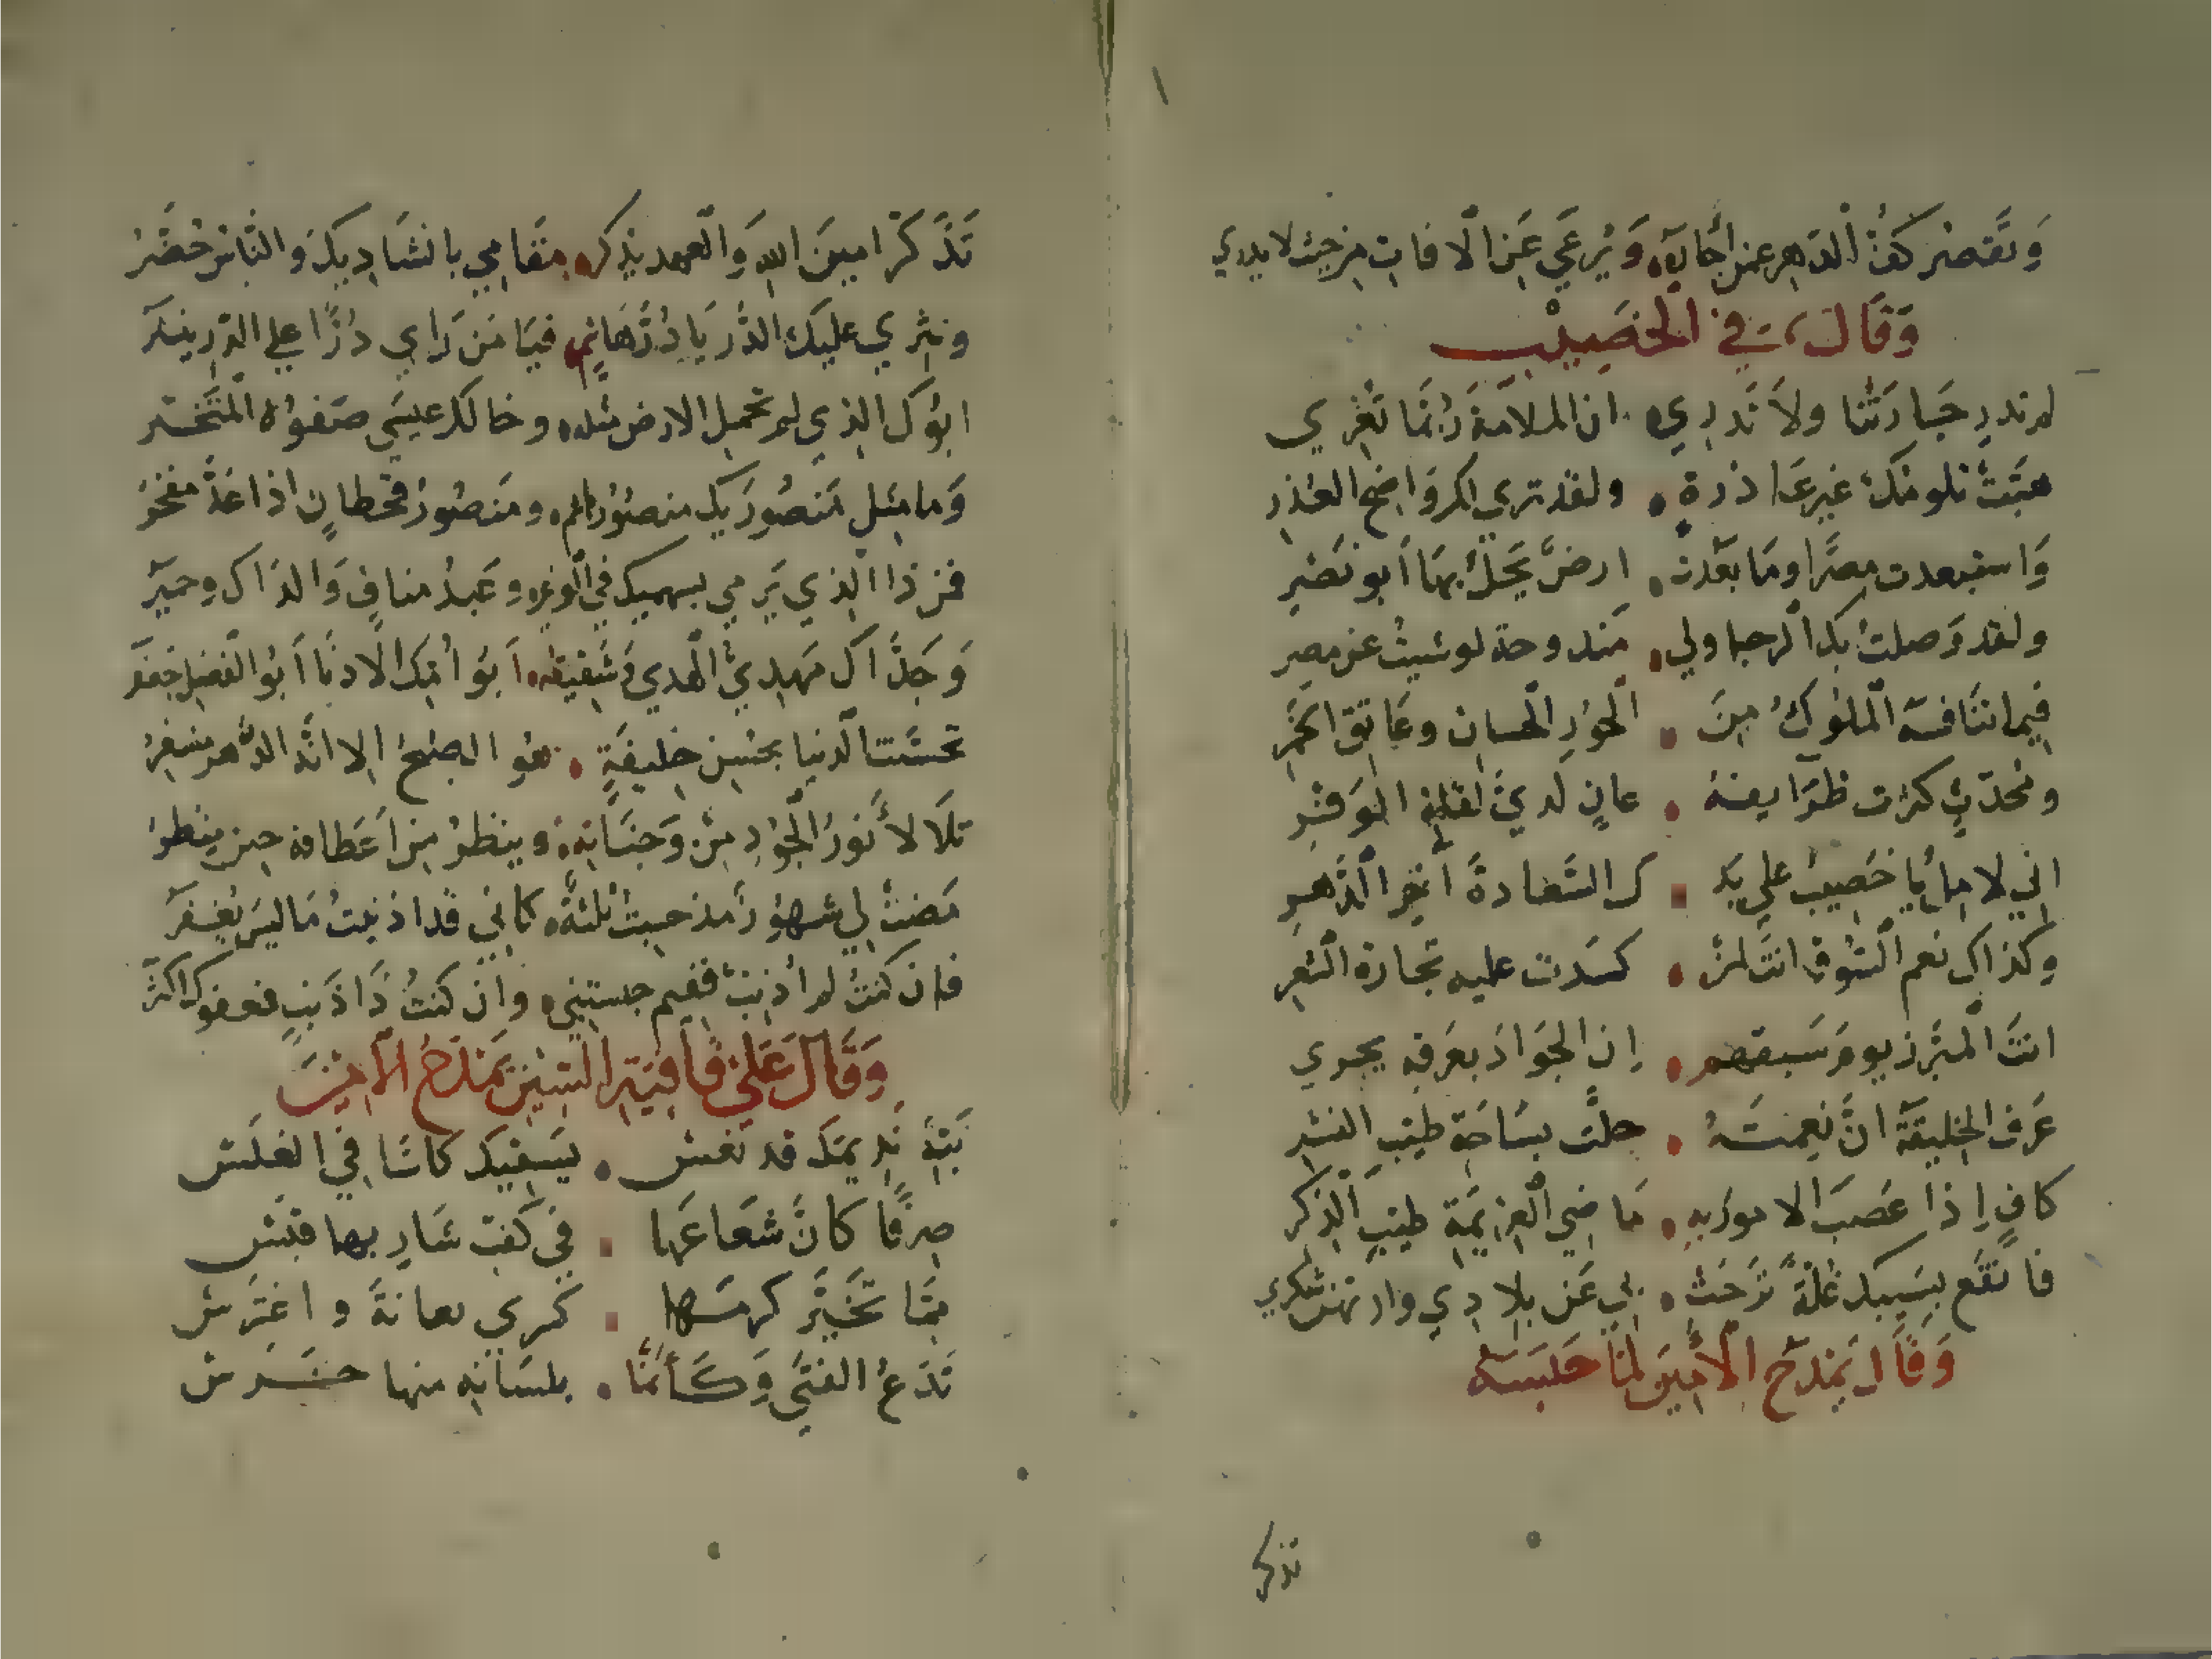 وَتقصر كفُّ الدهر عن أجابه وَيُرعى عَن الآفات من حيث لا يدري
وَقَالَ في الخصيب
لم تدر جَارَتُنا ولا تَدري ان الملامة رُبّما تُغري
هبَّت تلومك غير عَاذرةٍ ولقد تري لكم وَاضح العذر
وَاستبعدت مصرًا وما بَعُدت ارضٌ يَحلّ بها أبو نصْر
ولقد وَصلتُ بك الرجا ولي مندوحة لو شيتُ عن مصر
فيما تنافسه الملوكُ من الحور الحسان وعَاتق الخمر
ومحدّثٍ كثرت ظرايفه عانٍ لديَّ لقلة الوفر
اني لامل يا خَصيب علي يد ك السَّعادةَ آخر الدَّهر
وكذاك نعم السُّوق انتَ لمن كسَدت عليه تجارة الشعر
انتَ المبرّز يومَ سَبقهم ان الجَوَادَ بعَرفه يجري
عَرف الخليفَة انَّ نِعمَتهُ حلَّت بسَاحَة طيّب النشر
كافٍ إذا عَصَب الامورَ به مَاضي العزيمَة طيّب الذكر
فانقع بسَيبك غُلّةً نزَحَت بي عَن بلادي وارتهن شكري
وَقَال يَمدَح الأمين لمّا حبسَه
تذكر
تَذَكّر امينَ اللهِ وَالعهد يذكر مقَامي بانشَاديكَ والناس حُضَّر
ونثري عليك الدُّر يَا دُرَّ هَاشم فيَا مَن رَاي دُرًّا علي الدر ينثر
ابُوك الذي لم تحمل الارض مثله وخالك عيسَي صَفوُه المتخير
وَما مثل مَنصُورَيك منصُورُ هاشم ومَنصُورُ قحطانٍ اذا عُدَّ مفخر
فمن ذا الذي يَرمي بسهميك في الوغي وعَبدُ منافٍ وَالدَاك وحمير
وَجَدَّاك مَهديُّ الهدي وَشَقيقه ابوُ امِّك الادنَا أبوُ الفضل جعفر
تحسَّنت الدنيا بحُسن خليفَةٍ هُو الصبْح الا انَّه الدَّهر مسفرُ
تلَالأ نورُ الجُودِ من وَجنَاته وينظرُ من أَعطافه حين ينظر
مَضت لي شهوُر مذ حبستُ ثلثَةٌ كاني قد اذنبتُ مَا ليسَ يُغفَر
فان كنتُ لم أذنب ففيم حبستني وان كنتُ ذَا ذَنبٍ فعفوك اكثر
وَقَالَ عَلَى قَافيَة السّين يَمْدَحُ الأمينَ
نَبِّهْ نَديمَك قد نعَس يَسقيك كاسًا في الغلَس
صِرفًا كانَّ شعَاعَها في كف شَارِبها قبَس
ممَّا تَخيَّر كرمَها كسرَي بعانةَ واغترَس
تَدَعُ الفتَي وَكَأنّما بلسَانه منها خَرَس